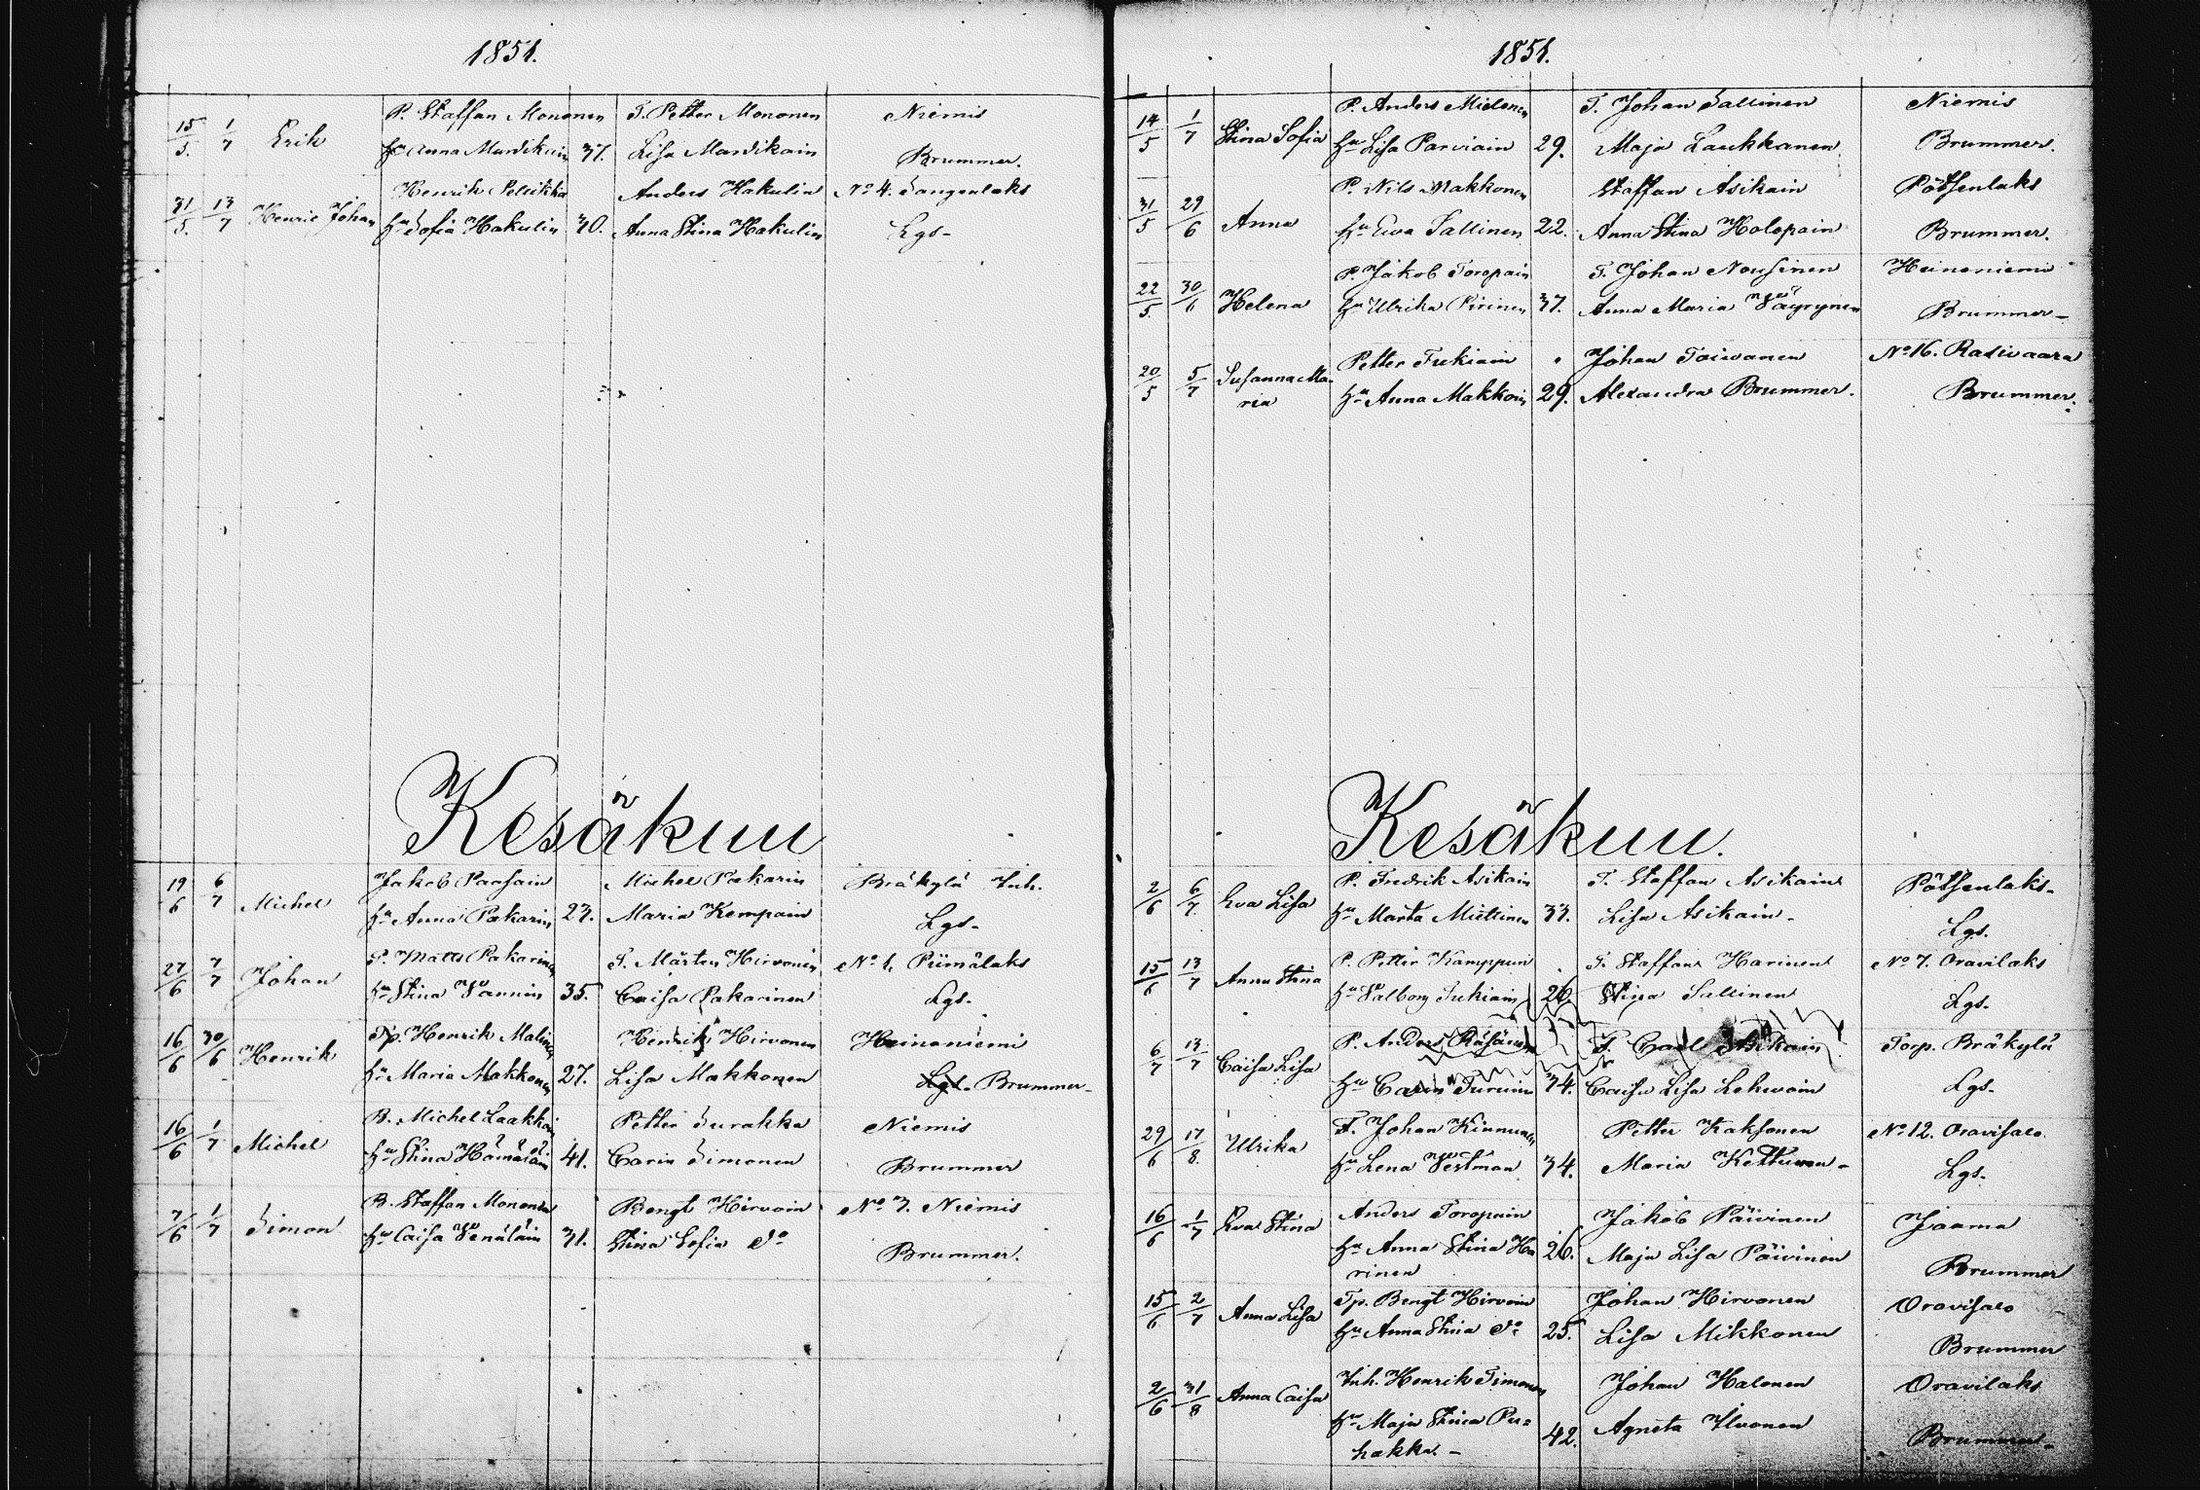 1851.
15/5. 1/7 Erik P. Staffan Mononen T. Petter Mononen Niemis
Hu Anna Mardikain 37. Lisa Mardikain Brummer.
31/5. 13/7 Henric Johan Henrik Pelkikka Anders Hakulin No 4. Sangenlaks
Hu Sofia Hakulin 30. Anna Stina Hakulin Lgs-
Kesäkuu
19/6 6/7 Michel Jakob Paasain Michel Pakarin Bräkylä Inh.
Hu Anna Pakarin 23. Maria Kempain Lgs-
27/6 7/7 Johan P. Matts Pakarinen T. Mårten Hirvonen No 1, Piimälaks
Hu Stina Wannin 35. Caisa Pakarinen Lgs.
16/6 30/6 Henrik Tp. Henrik Malinen Henrik Hirvonen Heinoniemi
Hu Maria Makkonen 27. Lisa Makkonen Lgs. Brummer-
16/6 1/7 Michel B. Michel Laakkoin Petter Surakka Niemis
Hu Stina Hämäläin 41. Carin Simonen Brummer
7/6 1/7 Simon B. Staffan Mononen Bengt Hirvoin No 7. Niemis
Hu Caisa Venäläin 31. Stina Sofia do Brummer.
1851.
14/5 1/7 Stina Sofia P. Anders Mielonen T. Johan Sallinen Niemis
Hu Lisa Parviain 29. Maja Laukkanen Brummer.
31/5 29/6 Anna P. Nils Makkonen Staffan Asikain Pötsenlaks
Hu Eva Sallinen 22. Anna Stina Holopain Brummer.
22/5. 30/6 Helena P. Jakob Toropain T. Johan Nousinen Heinoniemi
Hu Ulrika Pirinen 37. Anna Maria Wäyrynen Brummer-
20/5 5/7 Susanna Ma- Petter Tukiain Johan Toivanen No 16. Rasivaara
ria Hu Anna Makkoin 29. Alexandra Brummer. Brummer.
Kesäkuu.
2/6 6/7. Eva Lisa P. Fredrik Asikain T. Staffan Asikain Pötsenlaks-
Hu Marta Miettinen 33. Lisa Asikain- Lgs.
15/6 13/7 Anna Stina P. Petter Kamppuri T. Staffan Harinen No 7. Oravilaks
Hu Walborg Tukiain 26. Stina Sallinen Lgs-
6/7 13/7 Caisa Lisa P. Anders Räsänen T. Carl Asikain Torp. Bräkylä
Hu Carin Turuin 34. Caisa Lisa Lehvoin Lgs-
29/6 17/8. Ulrika T. Johan Kinnunen Petter Kaksonen No 12. Oravisalo.
Hu Lena Westman 34. Maria Kettunen- Lgs-
16/6 1/7 Eva Stina Anders Toropain Jakob Päivinen Jaama
Hu Anna Stina Ha 26. Maja Lisa Päivinen Brummer
rinen
15/6 2/7 Anna Lisa Tp. Bengt Hirvoin Johan Hirvonen Oravisalo
Hu Anna Stina do 25. Lisa Mikkonen Brummer
2/6 31/8 Anna Caisa Inh. Henrik Simonen Johan Halonen Oravilaks
Hu Maja Stina Pu= 42. Agneta Ilvonen Brummer-
hakka.-